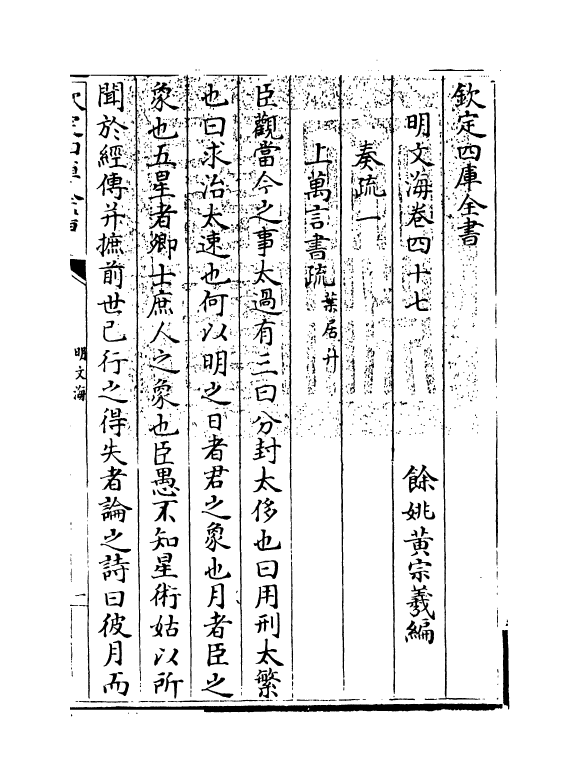 欽定四庫全書
明文海卷四十七　餘姚黄宗羲編
奏疏一
上萬言書疏 葉居升
臣觀當今之事太過有三曰分封太侈也曰用刑太繁
也曰求治太速也何以明之日者君之象也月者臣之
象也五星者卿士庶人之象也臣愚不知星術姑以所
聞於經傳并摭前世已行之得失者論之詩曰彼月而
明文海